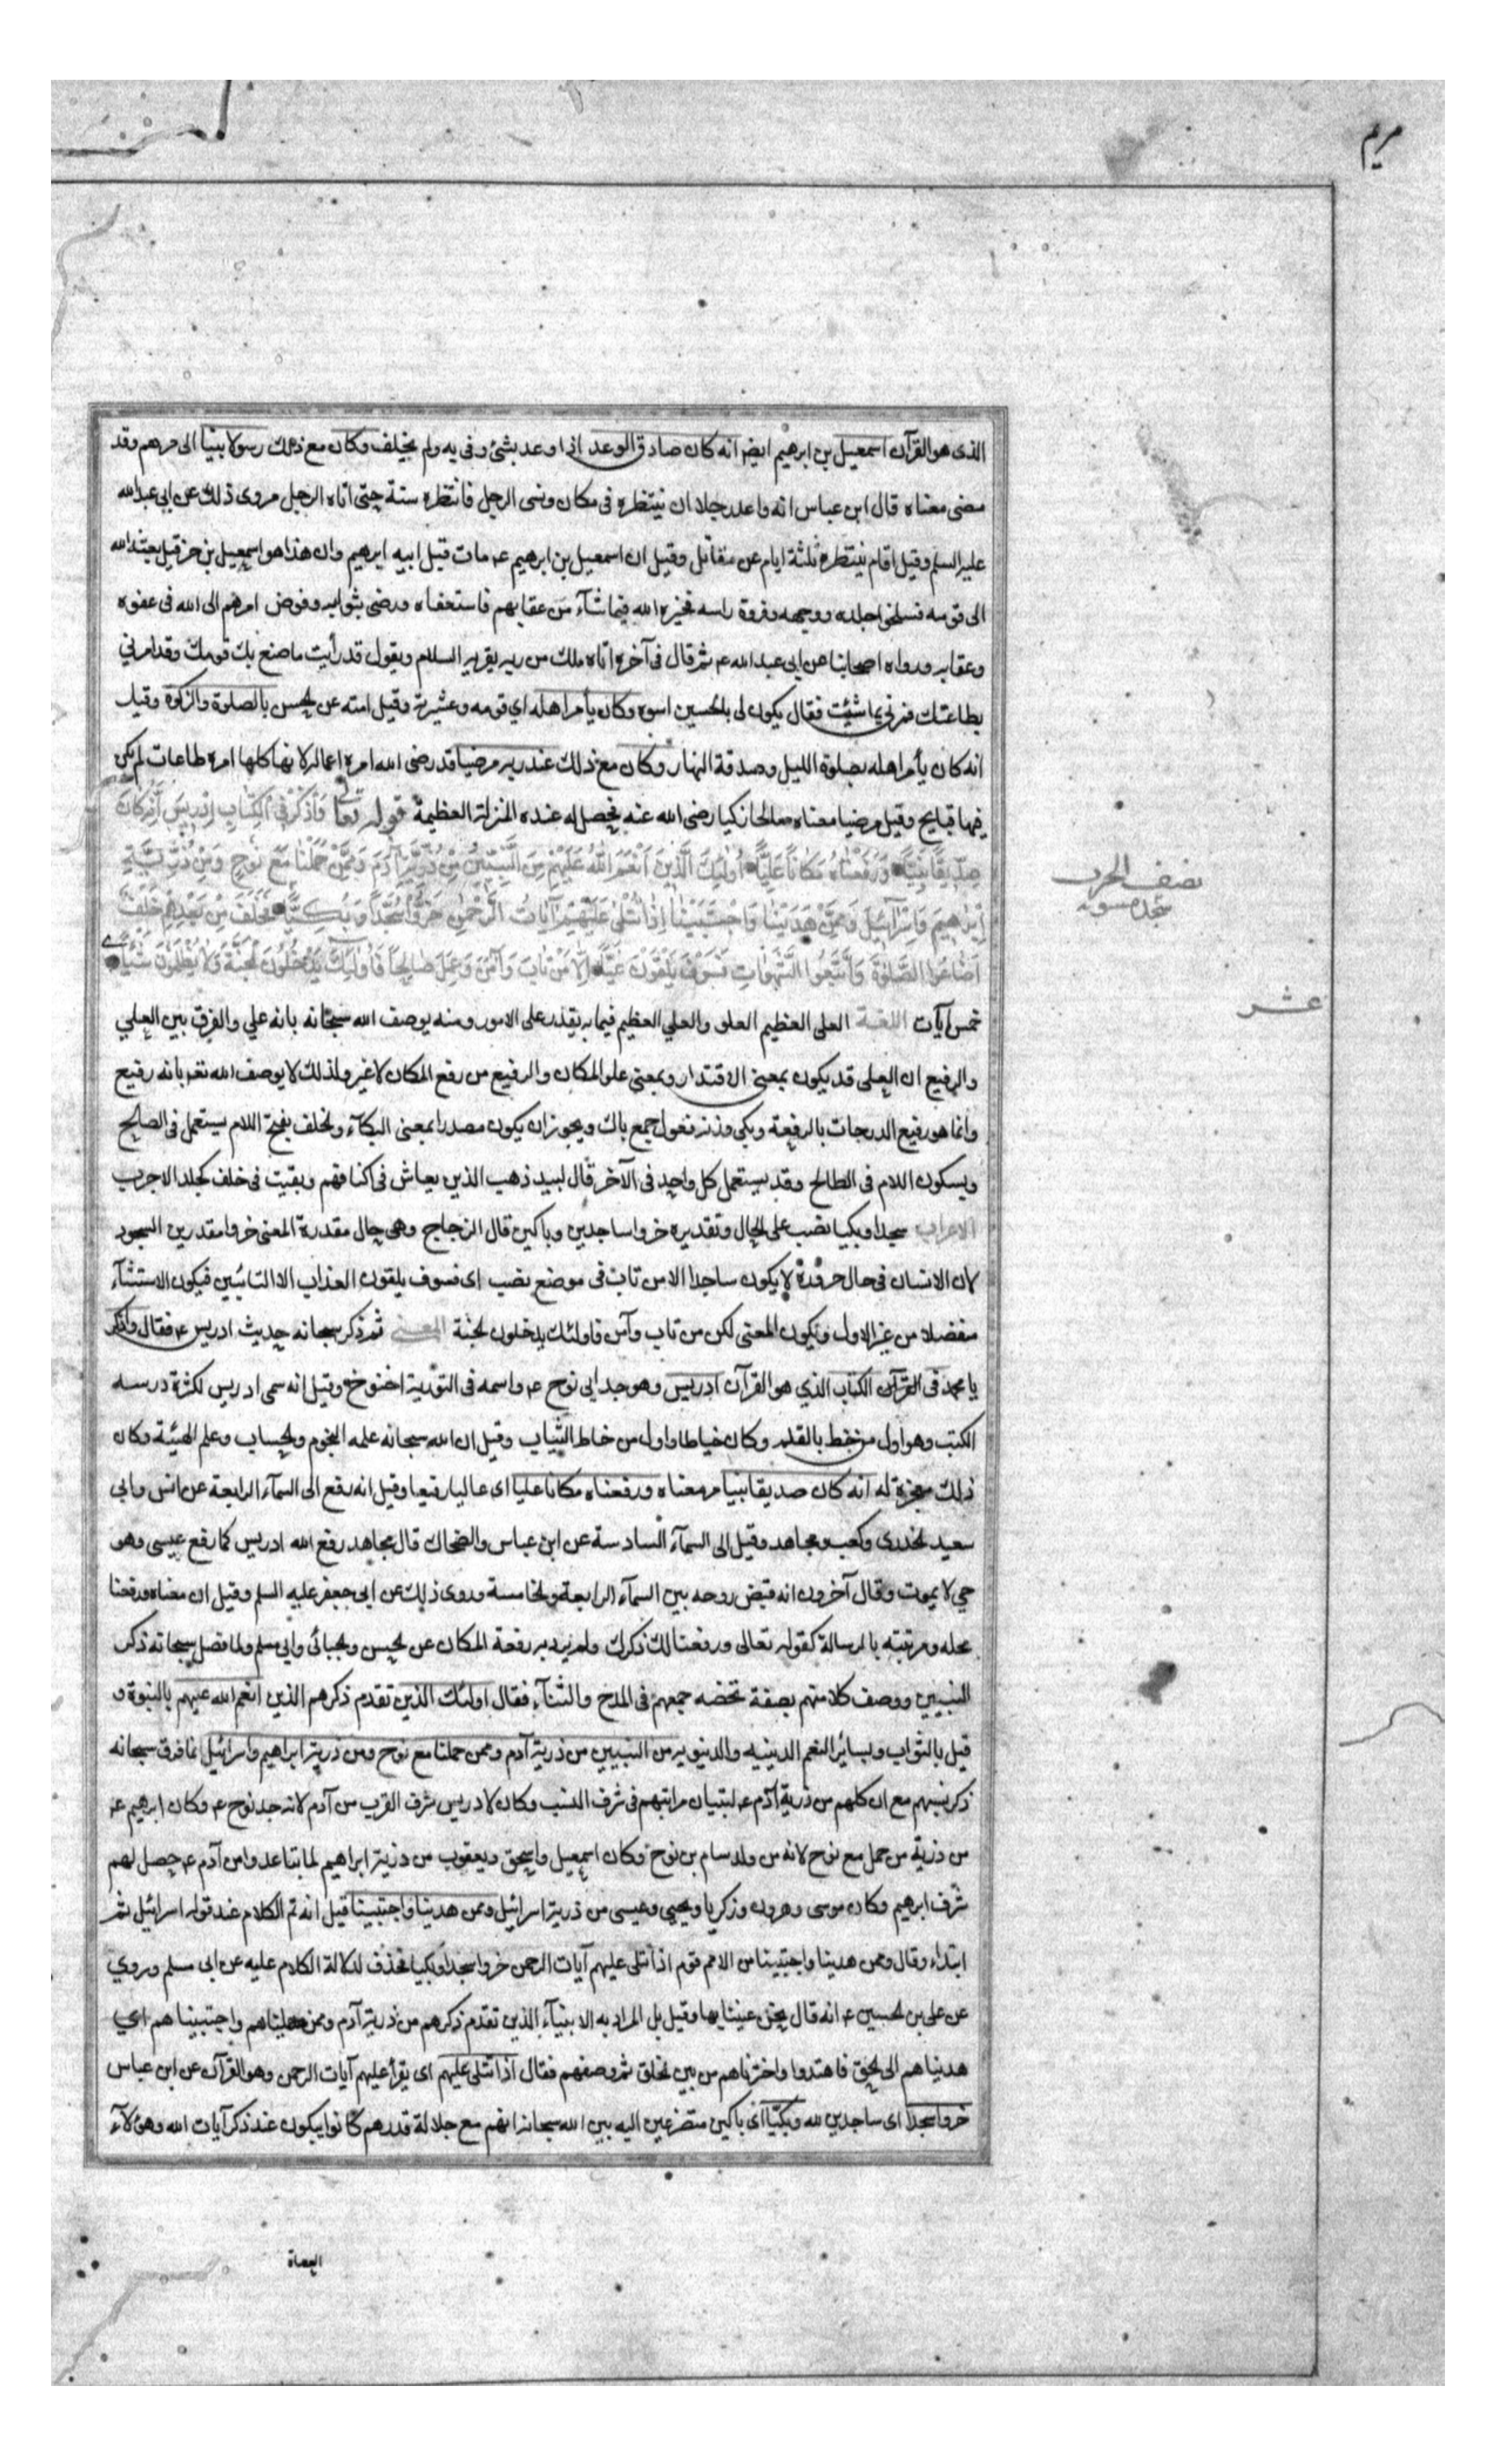 مريم
الذى هو القرآن اسمعيل بن ابرهيم ايضا انه كان صادق الوعد اذا وعد بشئ وفى به ولم يخلف وكان مع ذلك رسولا نبيا الى جرهم وقد
مضى معناه قال ابن عباس انه واعد رجلا ان ينتظره فى مكان ونسى الرجل فانتظره سنة حتى اتاه الرجل مروى ذلك عن ابى عبدالله
عليه السلم وقيل اقام ينتظره ثلثة ايام عن مقاتل وقيل ان اسمعيل بن ابرهيم ع مات قبل ابيه ابرهيم وان هذا هو اسمعيل بن حزقيل بعثه الله
الى قومه فسلخوا جلده ووجهه وفروة راسه فخيره الله فيما شآء من عقابهم فاستعفاه ورضى بثوابه وفوض امرهم الى الله فى عفوه
وعقابه ورواه اصحابنا عن ابى عبد الله ع ثم قال فى آخره اتاه ملك من ربه يقريه السلام ويقول قد رأيت ما صنع بك قومك وقد امرني
بطاعتك فمرني بما شئت فقال يكون لى بالحسين اسوة وكان يأمر اهله اي قومه وعشيرته وقيل امته عن الحسن بالصلوة والزكوة وقيل
انه كان يأمر اهله بصلوة الليل وصدقة النهار وكان مع ذلك عند ربه مرضيا قد رضى الله امره اعماله لانها كلها امره طاعات لم يكن
فيها قبايح وقيل مرضيا معناه صالحا زكيا رضى الله عنه فحصل له عنده المنزلة العظيمة قوله تعالى وَاذْكُرْ فِى الْكِتَابِ اِدْرِيسَ اِنَّهُ كَانَ
صِدِّيقًا نَبِيًّا وَرَفَعْنَاهُ مَكَانًا عَلِيًّا اُولٰئِكَ الَّذِينَ اَنْعَمَ اللهُ عَلَيْهِمْ مِنَ النَّبِيِّينَ مِنْ ذُرِّيَّةِ آدَمَ وَمِمَّنْ حَمَلْنَا مَعَ نُوحٍ وَمِنْ ذُرِّيَّةِ
اِبْرَاهِيمَ وَاِسْرَآئِيلَ وَمِمَّنْ هَدَيْنَا وَاجْتَبَيْنَا اِذَا تُتْلٰى عَلَيْهِمْ آيَاتُ الرَّحْمٰنِ خَرُّوا سُجَّدًا وَبُكِيًّا فَخَلَفَ مِنْ بَعْدِهِمْ خَلْفٌ
اَضَاعُوا الصَّلٰوةَ وَاتَّبَعُوا الشَّهَوَاتِ فَسَوْفَ يَلْقَوْنَ غَيًّا اِلَّا مَنْ تَابَ وَآمَنَ وَعَمِلَ صَالِحًا فَاُولٰئِكَ يَدْخُلُونَ الْجَنَّةَ وَلَا يُظْلَمُونَ شَيْئًا
نصف الحزب
سجده مسنونه
عشر
خمس آيات اللغة العلى العظيم العلو والعلي العظيم فيما به يقدر على الامور ومنه يوصف الله سبحانه بانه علي والفرق بين العلي
والرفيع ان العلى قد يكون بمعنى الاقتدار وبمعنى علو المكان والرفيع من رفع المكان لا غير ولذلك لا يوصف الله تعالى بانه رفيع
وانما هو رفيع الدرجات بالرفعة وبكي وزنه فعول جمع باك ويجوز ان يكون مصدرا بمعنى البكآء والخلف بفتح اللام يستعمل فى الصالح
وبسكون اللام فى الطالح وقد يستعمل كل واحد فى الآخر قال لبيد ذهب الذين يعاش فى اكنافهم وبقيت فى خلف كجلد الاجرب
الاعراب سجدا وبكيا نصب على الحال وتقديره خروا ساجدين وباكين قال الزجاج وهى حال مقدرة المعنى خروا مقدرين السجود
لان الانسان فى حال خروره لا يكون ساجدا الا من تاب فى موضع نصب اى فسوف يلقون العذاب الا التائبين فيكون الاستثنآء
منفصلا من غير الاول ويكون المعنى لكن من تاب وآمن فاولئك يدخلون الجنة المعنى ثم ذكر سبحانه حديث ادريس ع فقال واذكر
يا محمد فى القرآن الكتاب الذي هو القرآن ادريس وهو جد ابي نوح ع واسمه فى التورية اخنوخ وقيل انه سمى ادريس لكثرة درسه
الكتب وهو اول من خط بالقلم وكان خياطا واول من خاط الثياب وقيل ان الله سبحانه علمه النجوم والحساب وعلم الهيئة وكان
ذلك معجزة له انه كان صديقا نبيا مر معناه ورفعناه مكانا عليا اى عاليا رفيعا وقيل انه رفع الى السمآء الرابعة عن انس وابي
سعيد الخدرى وكعب ومجاهد وقيل الى السمآء السادسة عن ابن عباس والضحاك قال مجاهد رفع الله ادريس كما رفع عيسى وهو
حي لا يموت وقال آخرون انه قبض روحه بين السمآء الرابعة والخامسة وروى ذلك عن ابى جعفر عليه السلم وقيل ان معناه ورفعنا
محله ومرتبته بالرسالة كقوله تعالى ورفعنا لك ذكرك ولم يرد به رفعة المكان عن الحسن والجبائى وابي مسلم ولما فصل سبحانه ذكر
النبيين ووصف كلا منهم بصفة تخصه جمعهم فى المدح والثنآء فقال اولئك الذين تقدم ذكرهم الذين انعم الله عليهم بالنبوة و
قيل بالثواب وبسائر النعم الدينيه والدنيويه من النبيين من ذرية آدم وممن حملنا مع نوح ومن ذرية ابراهيم واسرائيل انما فرق سبحانه
ذكر نسبهم مع ان كلهم من ذرية آدم ع لتبيان مراتبهم فى شرف النسب وكان لادريس شرف القرب من آدم لانه جد نوح ع وكان ابرهيم ع
من ذرية من حمل مع نوح لانه من ولد سام بن نوح وكان اسمعيل واسحق ويعقوب من ذرية ابراهيم لما تباعدوا من آدم ع حصل لهم
شرف ابرهيم وكان موسى وهرون وزكريا ويحيى وعيسى من ذرية اسرائيل وممن هدينا واجتبينا قيل انه تم الكلام عند قوله اسرائيل ثم
ابتداء وقال وممن هدينا واجتبينا من الامم قوم اذا تتلى عليهم آيات الرحمن خروا سجدا وبكيا فحذف لدلالة الكلام عليه عن ابى مسلم وروي
عن على بن الحسين ع انه قال نحن عنينا بها وقيل بل المراد به الانبيآء الذين تقدم ذكرهم من ذرية آدم وممن هديناهم واجتبيناهم اي
هديناهم الى الحق فاهتدوا واخترناهم من بين الخلق ثم وصفهم فقال اذا تتلى عليهم اى يقرأ عليهم آيات الرحمن وهو القرآن عن ابن عباس
خروا سجدا اى ساجدين لله وبكيا اى باكين متضرعين اليه بين الله سبحانه انهم مع جلالة قدرهم كانوا يبكون عند ذكر آيات الله وهؤلآء
العصاة